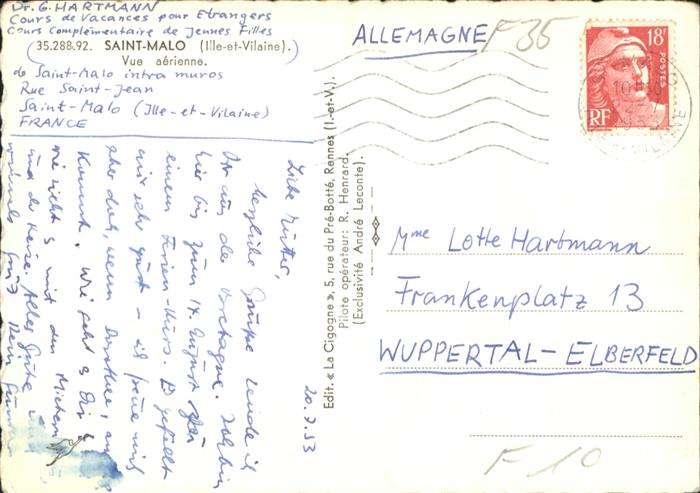 Dr. G. HARTMANN
Cours de Vacances pour Etrangers
Cours Complémentaire de Jeunes Filles
(35.288.92. SAINT-MALO (Ille-et-Vilaine).)
Vue aérienne.
de Saint-Malo intra muros
Rue Saint-Jean
Saint-Malo (Ille-et-Vilaine)
FRANCE
Liebe Mutter,
herzliche Grüsse sende ich
Dir aus der Bretagne. Ich bin
hier bis zum 14. August
einem Ferien-Kurs. Es gefällt
mir sehr gut – ich freue mich
aber doch, wenn Dorothee, an
kommt. Wie geht's Dir &
wie steht's mit den Mietern
und der Reise. Alles Gute &
Dein
20.7.53
Edit. « La Cigogne », 5, rue du Pré-Botté, Rennes (I.-et-V.).
Pilote opérateur: R. Henrard.
(Exclusivité André Leconte).
ALLEMAGNE
F 35
18F
POSTES
RF
Mme Lotte Hartmann
Frankenplatz 13
WUPPERTAL-ELBERFELD
F 10